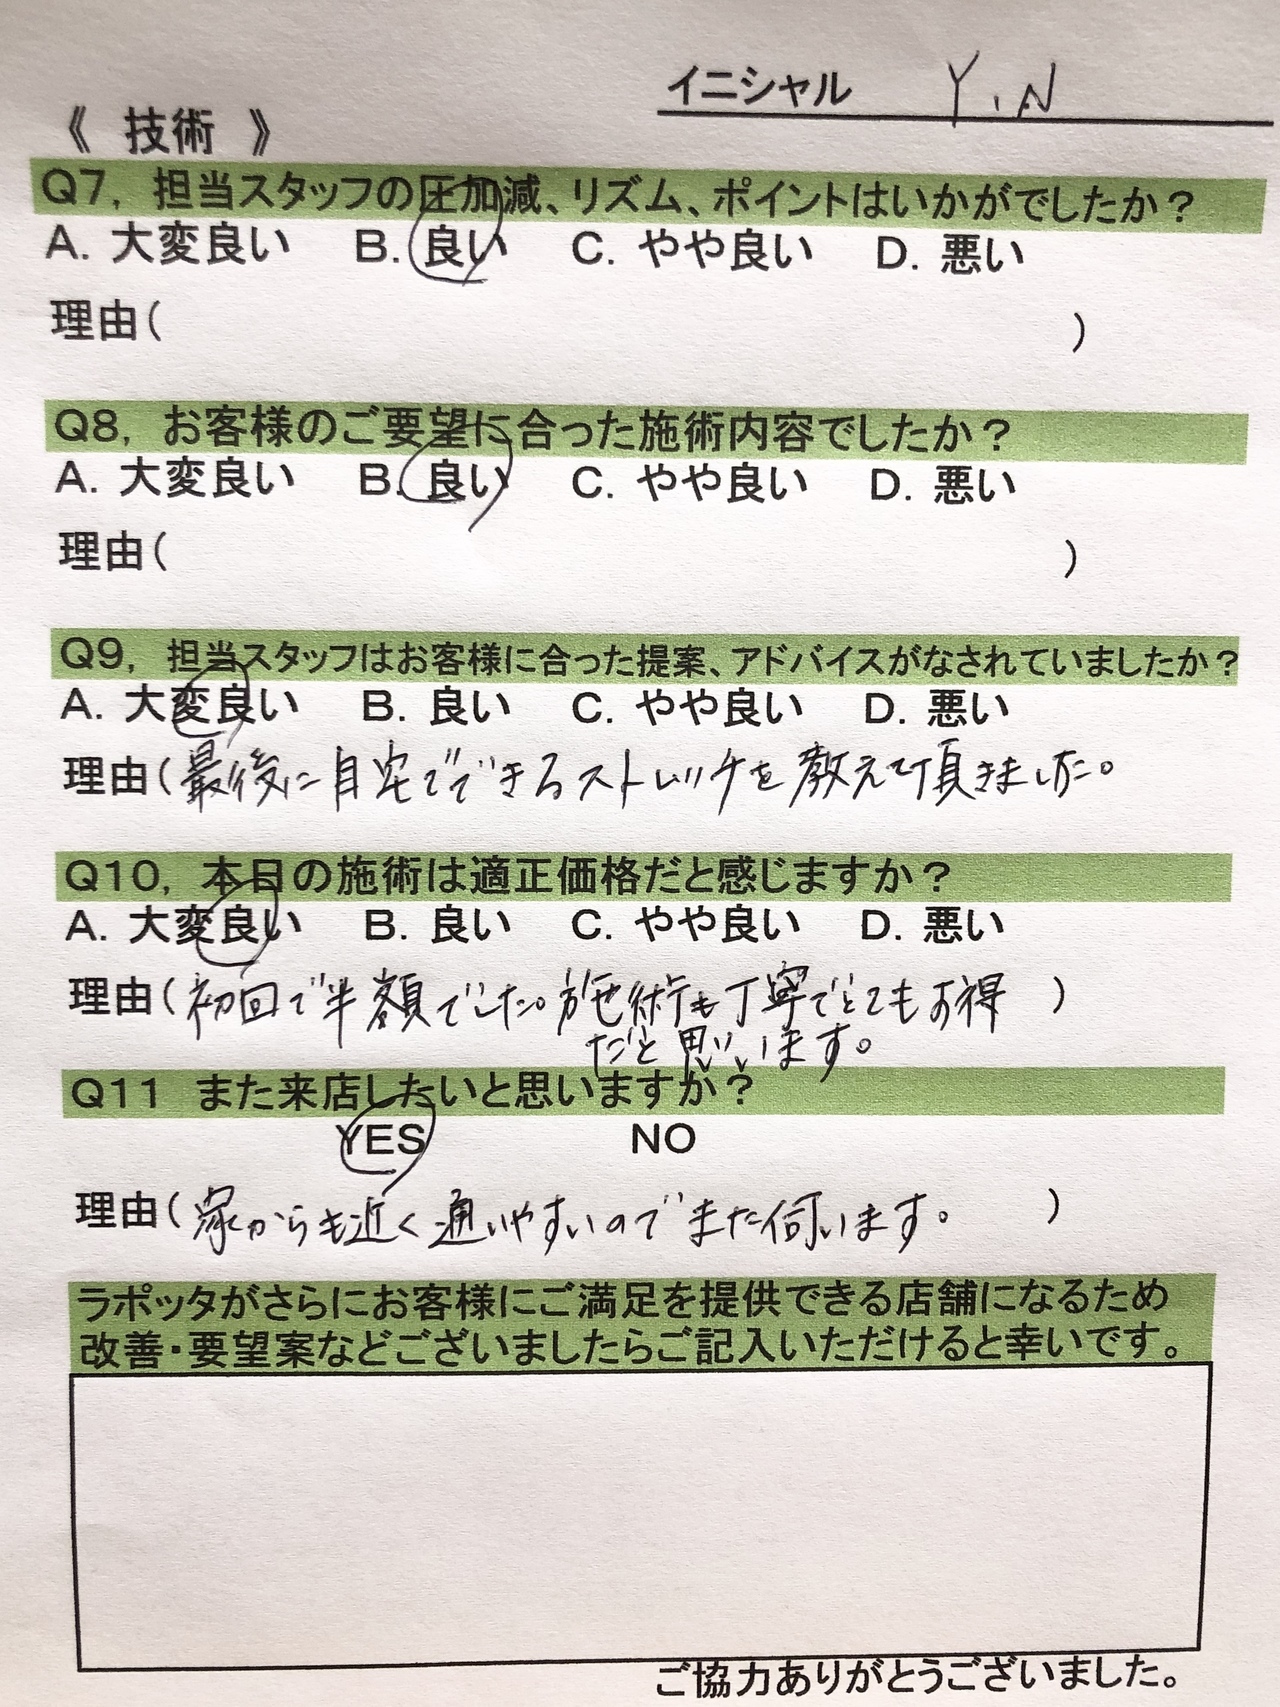 イニシャル Y.N
《 技術 》
Q7, 担当スタッフの圧加減、リズム、ポイントはいかがでしたか？
A. 大変良い B. 良い C. やや良い D. 悪い
理由( )
Q8, お客様のご要望に合った施術内容でしたか？
A. 大変良い B. 良い C. やや良い D. 悪い
理由( )
Q9, 担当スタッフはお客様に合った提案、アドバイスがなされていましたか？
A. 大変良い B. 良い C. やや良い D. 悪い
理由(最後に自宅でできるストレッチを教えて頂きました。
Q10, 本日の施術は適正価格だと感じますか？
A. 大変良い B. 良い C. やや良い D. 悪い
理由(初回で半額でした。施術も丁寧でとてもお得 )
だと思います。
Q11 また来店したいと思いますか？
YES NO
理由(家からも近く通いやすいのでまた伺います。 )
ラポッタがさらにお客様にご満足を提供できる店舗になるため
改善・要望案などございましたらご記入いただけると幸いです。
ご協力ありがとうございました。